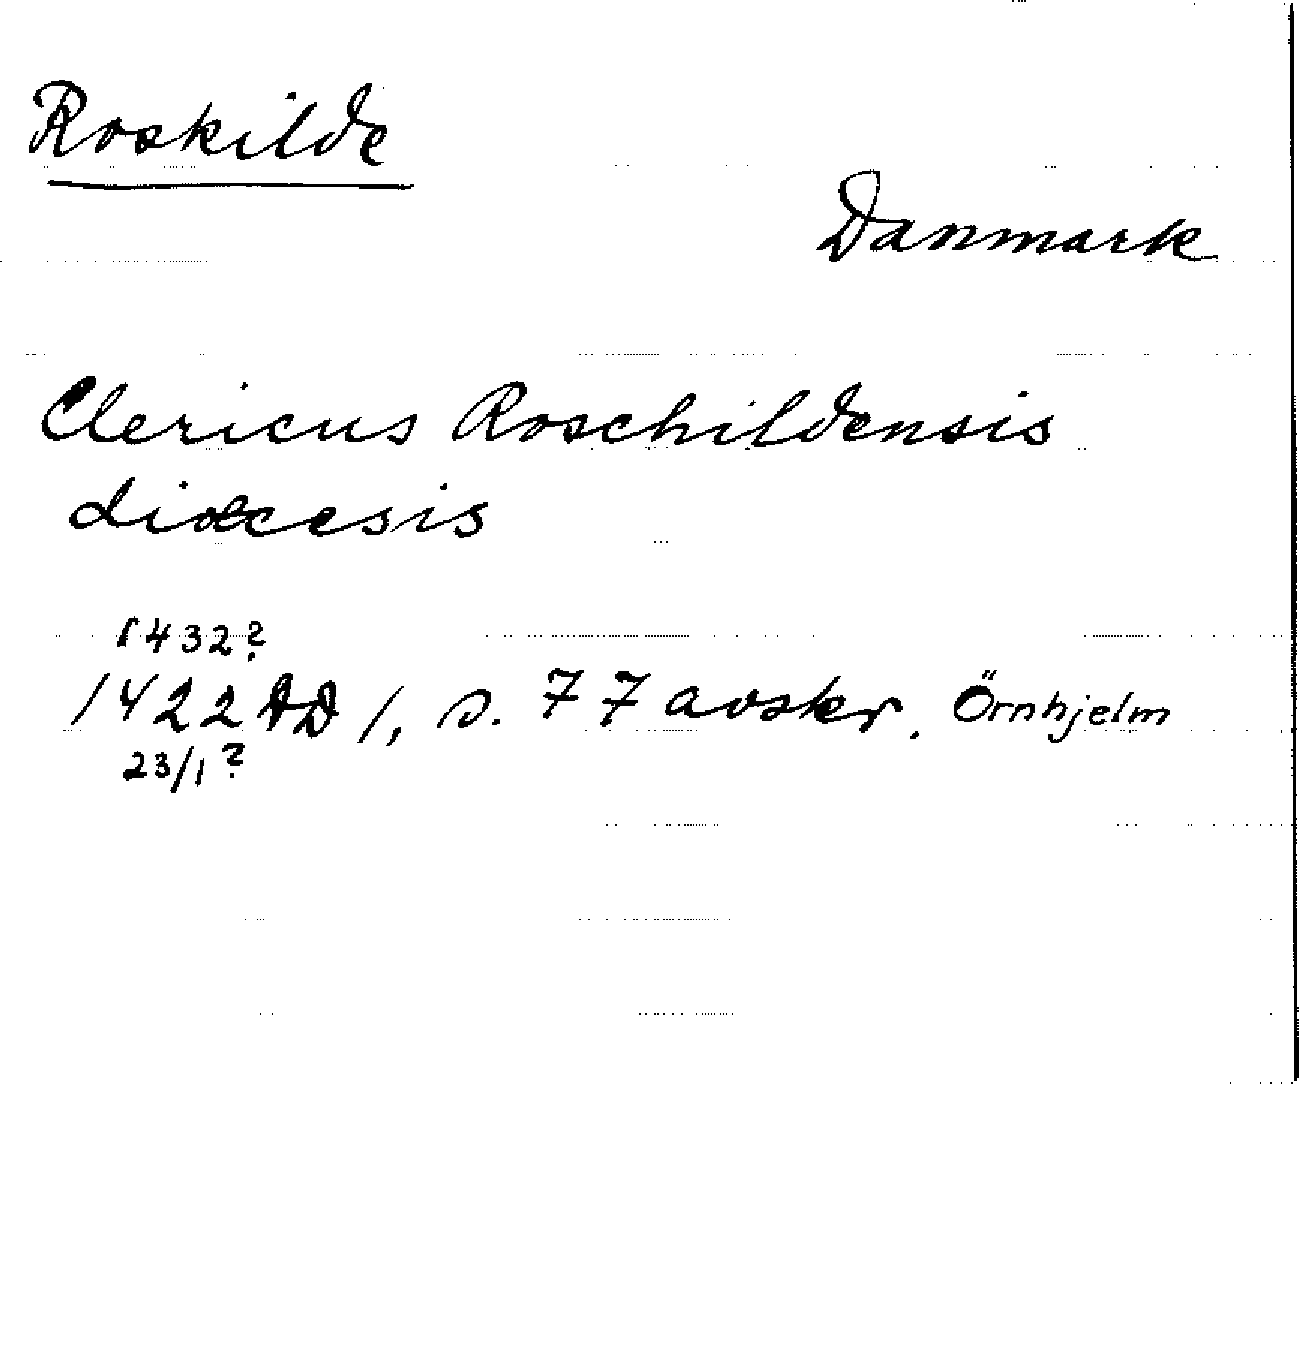 Roskilde
Danmark
Clericus Roschildensis
diœcesis
1432?
1422 DD 1, s. 77 avskr. Örnhjelm
23/1?